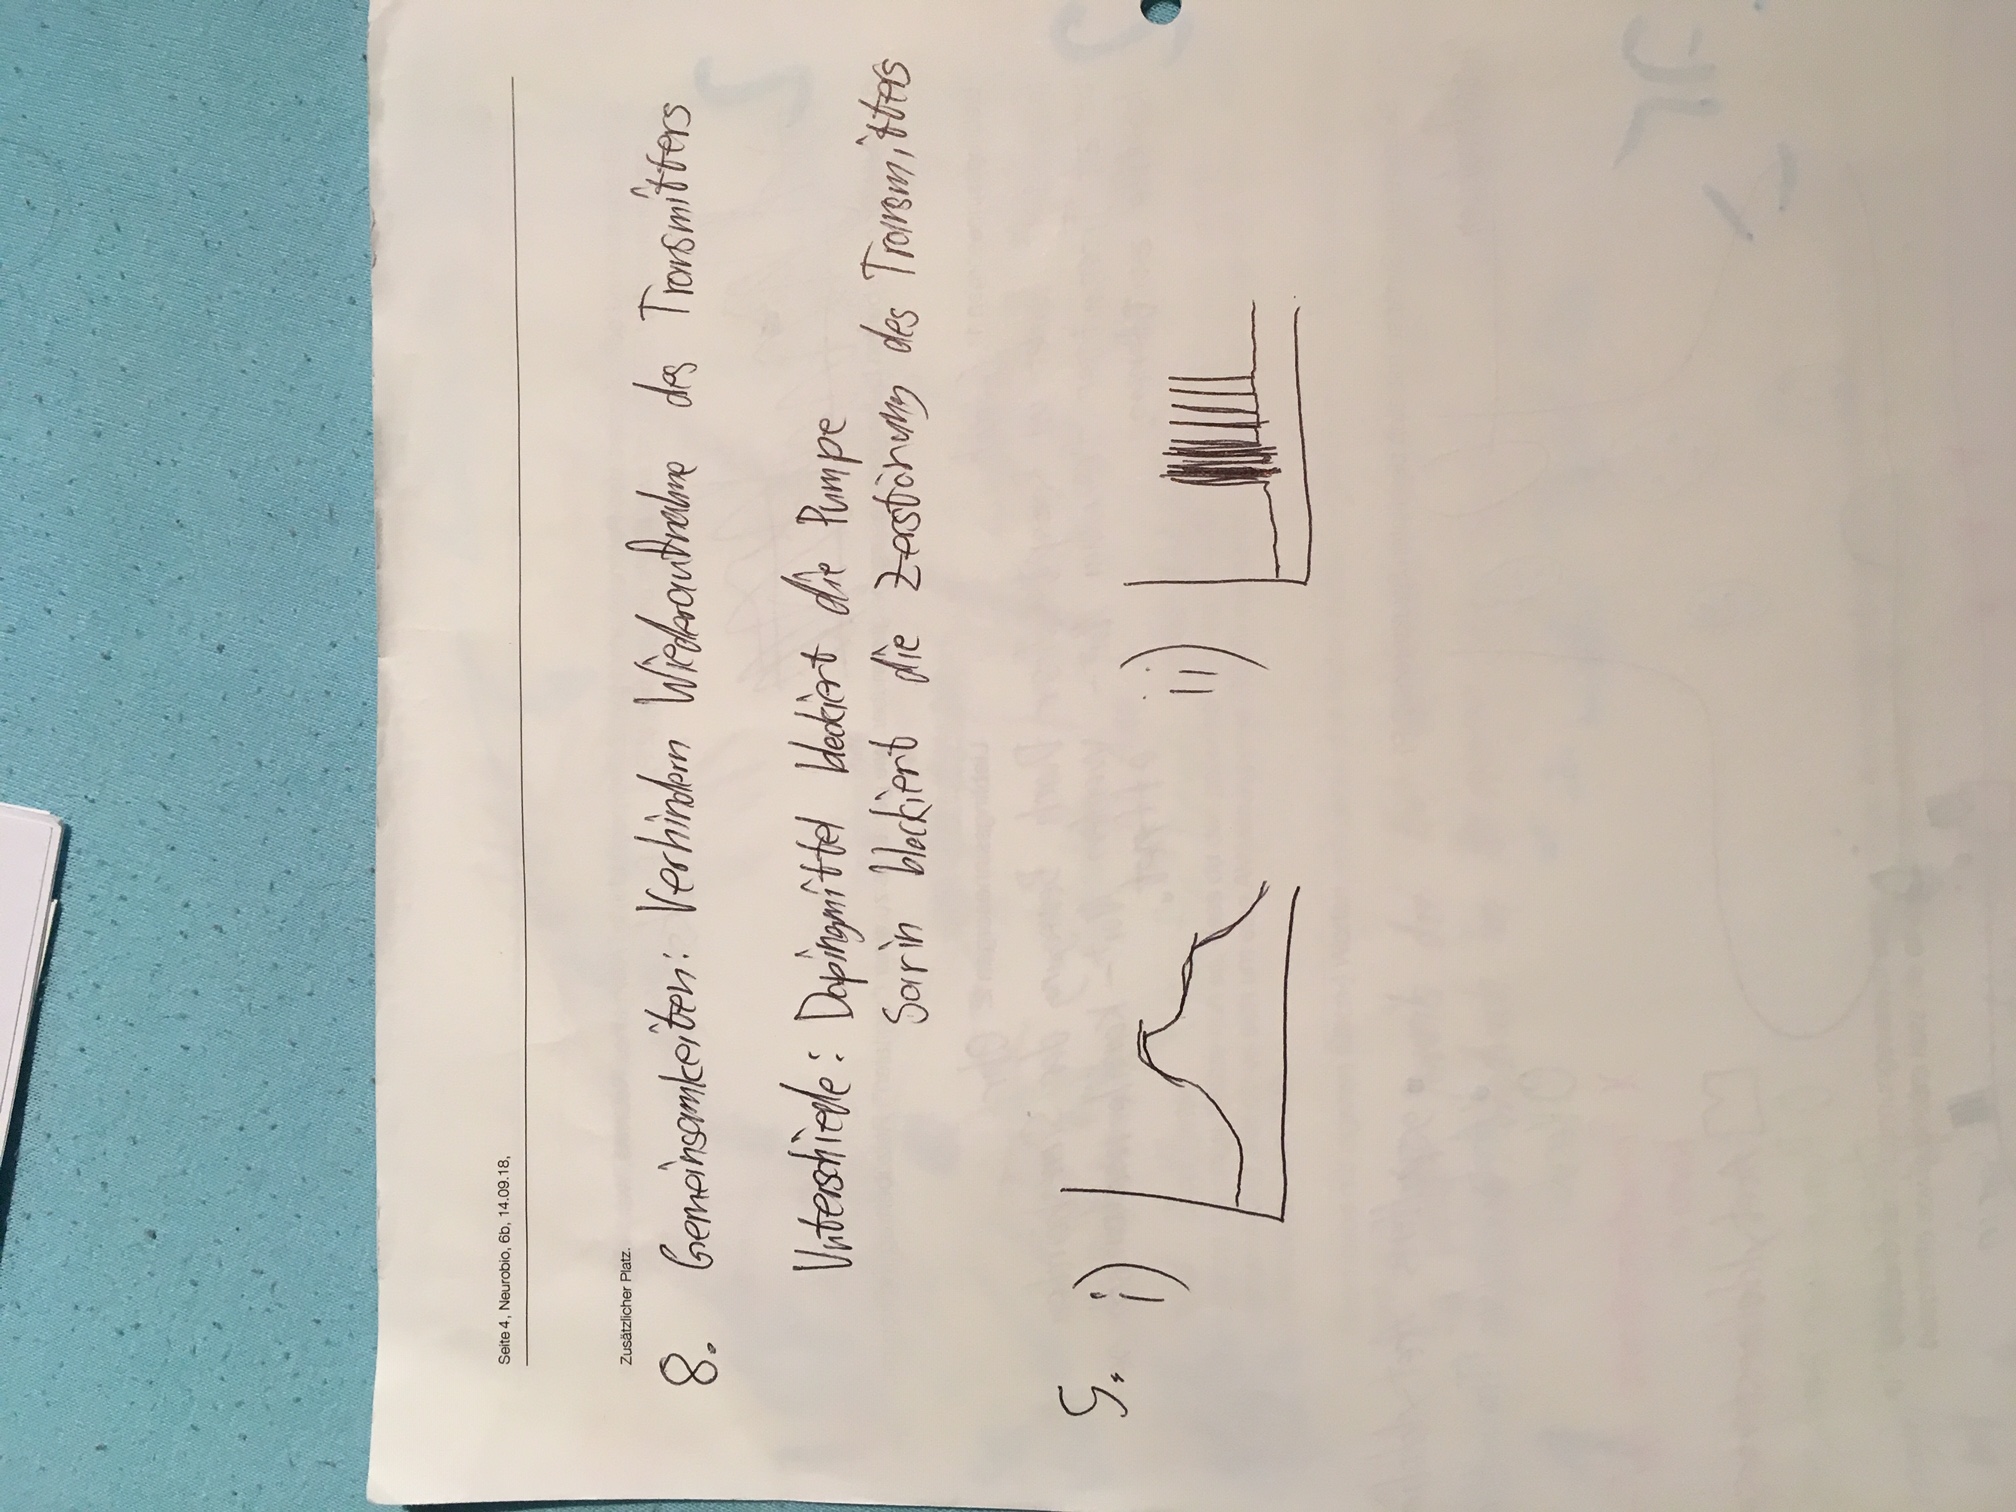 Seite 4, Neurobio, 6b, 14.09.18,
Zusätzlicher Platz.
8. Gemeinsamkeiten: Verhindern Wiederaufnahme des Transmitters
Unterschiede: Dopingmittel blockiert die Pumpe
Sarin blockiert die Zerstörung des Transmitters
5. i) ii)